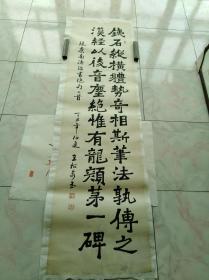 鐵石縱橫體勢奇相斯筆法孰傳之
漢經以後音塵絕惟有龍顏苐一碑
論書絕句一首
丁丑年仲夏 王松 書